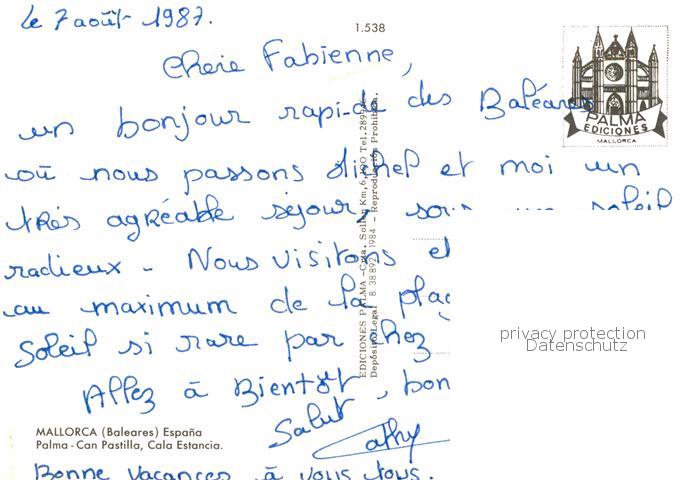 le 7 août 1987.
1.538
Chere Fabienne,
un bonjour rapide des Baléares
PALMA
EDICIONES
MALLORCA
où nous passons Michel et moi un
très agréable séjour, sous un soleil
radieux - Nous visitons et
au maximum de la plag
Soleil si rare par chez
privacy protection
Datenschutz
Allez à Bientôt, bon
Salut
Cathy
Bonne Vacances à vous tous.
MALLORCA (Baleares) España
Palma - Can Pastilla, Cala Estancia.
EDICIONES PALMA - Ctra. Soller, Km, 6,100 Tel.
Depósito Legal B. 38.892 1984 - Reproducción Prohibida.